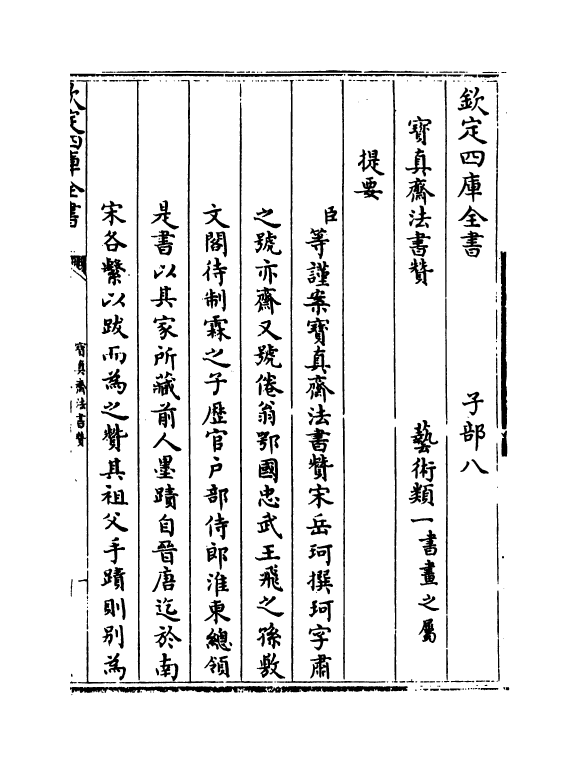 欽定四庫全書 子部八
寶真齋法書贊 藝術類一書畫之屬
提要
臣等謹案寶真齋法書贊宋岳珂撰珂字肅
之號亦齋又號倦翁鄂國忠武王飛之孫敷
文閣待制霖之子歴官户部侍郎淮東總領
是書以其家所藏前人墨蹟自晉唐迄於南
宋各繫以跋而為之贊其祖父手蹟則别為
欽定四庫全書
寶真齋法書贊
一